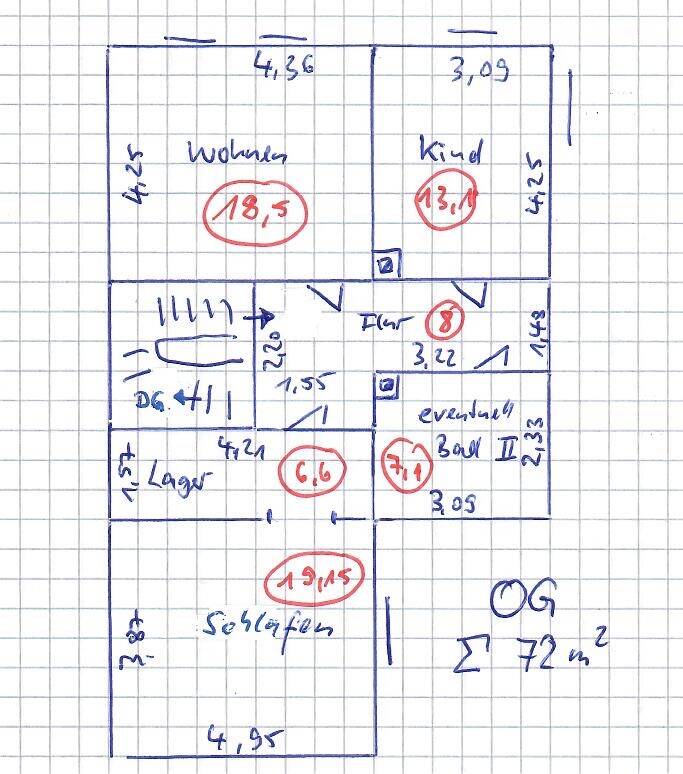 4,36
3,09
Wohnen
Kind
4,25
18,5
13,1
4,25
Flur
8
2,20
3,22
1,48
1,55
DG
eventuell
Bad II
2,33
4,21
1,57
Lager
6,6
7,1
3,09
19,15
OG
Schlafen
Σ 72 m²
3,87
4,95